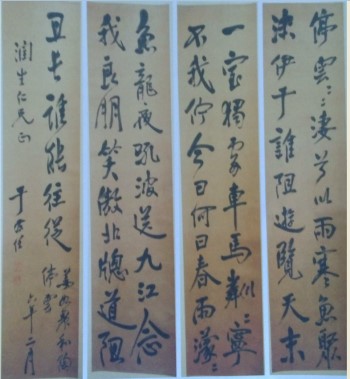 停雲〻凄兮以雨寒魚聚
沫伊予誰阻遊覽天末
一室獨
車馬
寧
不我佇今日何日春雨濛〻
魚龍夜吼波送九江念
我良朋笑傲北牕道阻
且長誰能往從
和陶
停雲
六年二月
潤生仁兄正
于右任